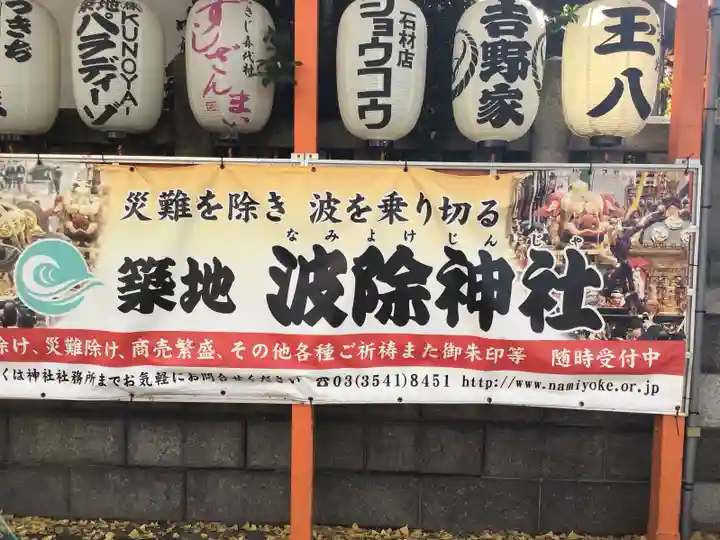 つきぢ
築地
パラディーソ
KUNOYA
つきじ喜代村
すしざんまい
石材店
ショウコウ
吉野家
玉八
災難を除き 波を乗り切る
なみよけじんじゃ
築地 波除神社
除け、災難除け、商売繁盛、その他各種ご祈祷また御朱印等 随時受付中
くは神社社務所までお気軽にお問合せください ☎03(3541)8451 http://www.namiyoke.or.jp